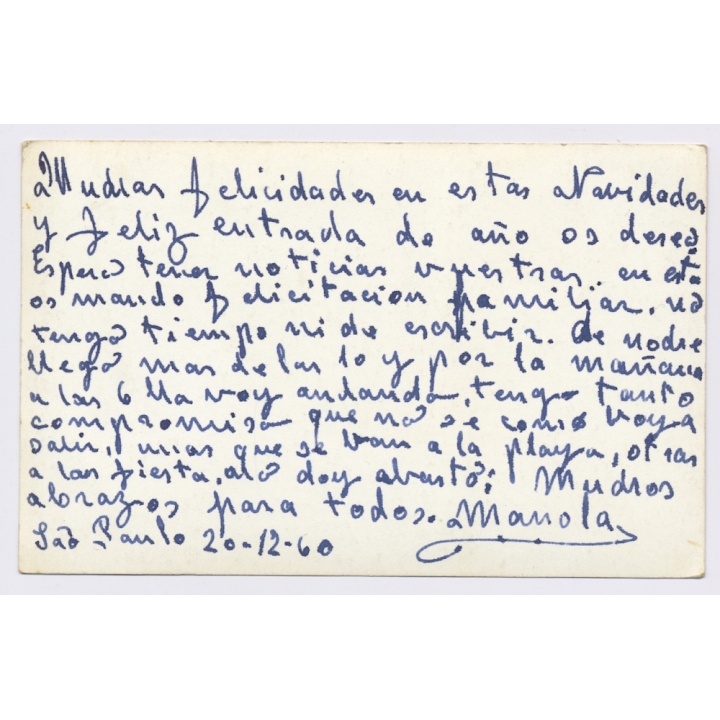 Muchas felicidades en estas Navidades
y feliz entrada de año os deseo
Espero tener noticias vuestras. en esta
os mando felicitacion familiar. no
tengo tiempo ni de escribir. de noche
llego mas de las 10 y por la mañana
a las 6 lla voy andando, tengo tanto
compromiso que no se como voy a
salir, unas que se van a la playa, otras
a las fiesta. no doy abasto; Muchos
abrazos para todos. Manola.
São Paulo 20-12-60